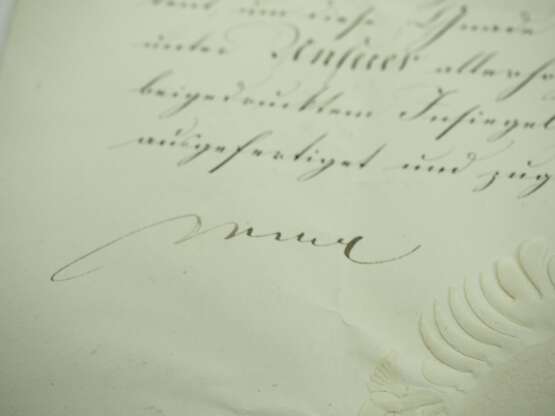 um diese Gnade
unter Unserer allerh
beigedrucktem Insiegel
ausgefertiget und zug